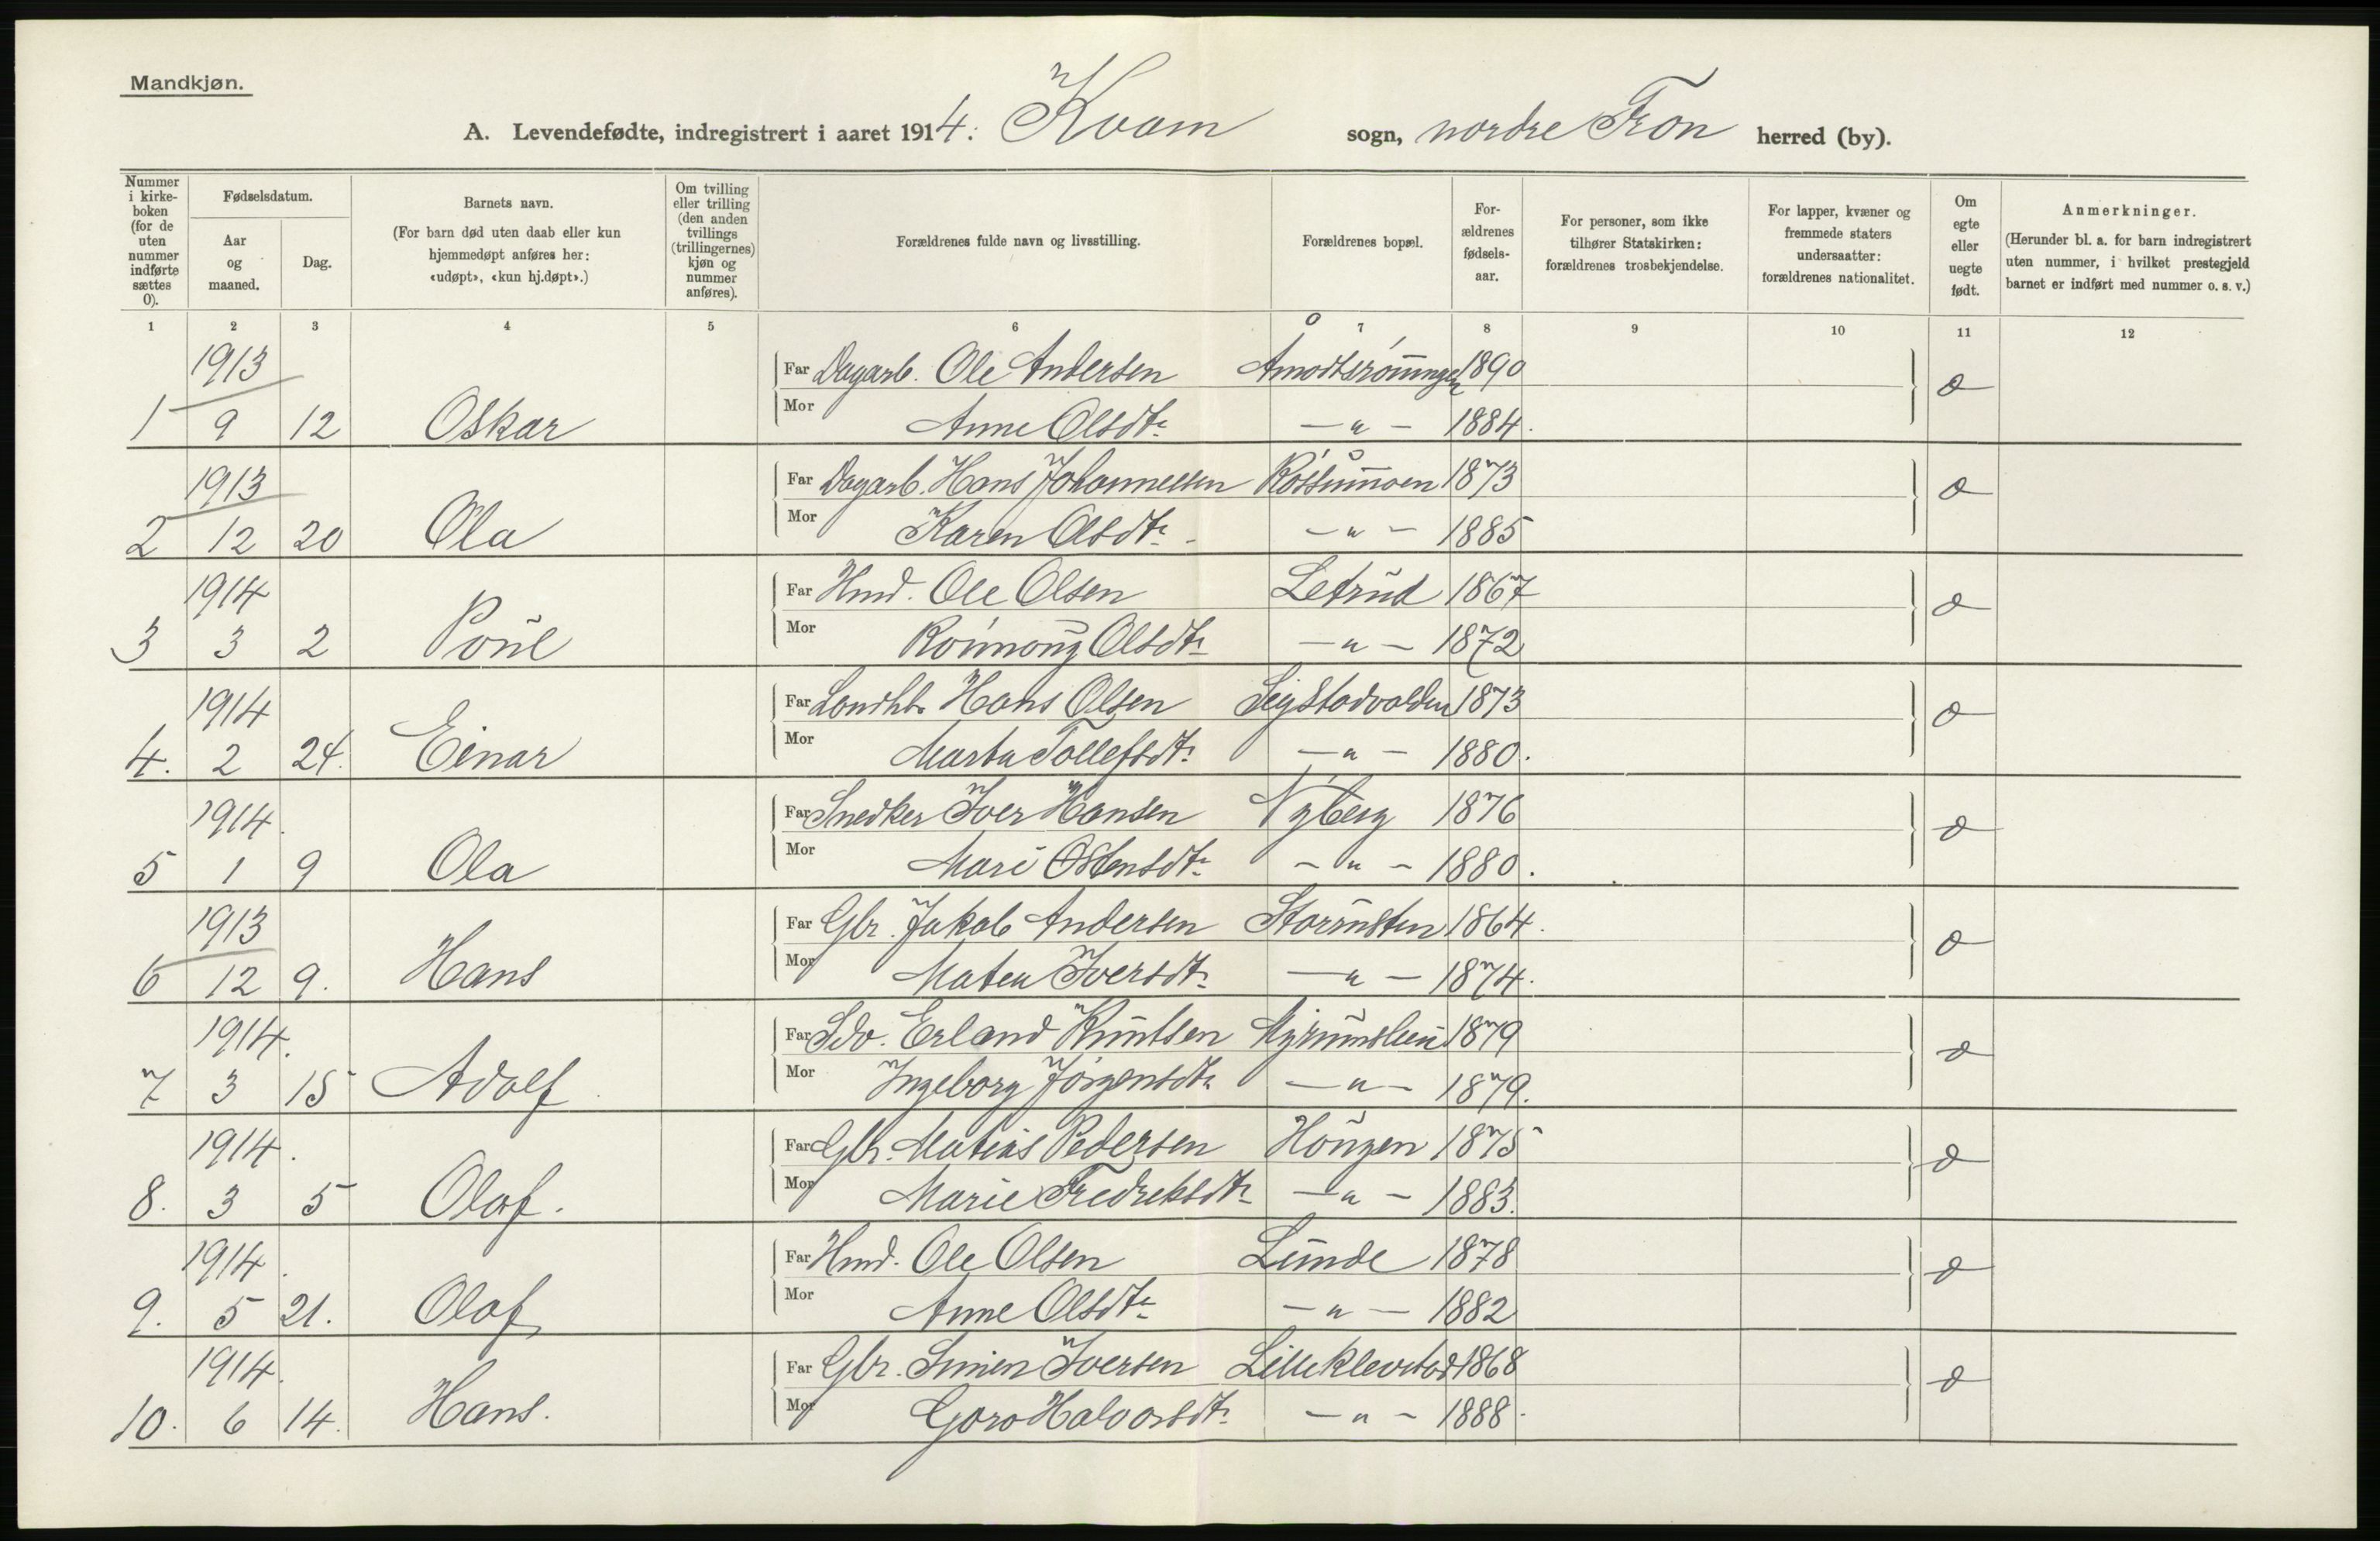 Mandkjøn.
A. Levendefødte, indregistrert i aaret 1914: Kvam sogn, nordre Fron herred (by).
Nummer i kirke-boken (for de uten nummer indførte sættes 0).
Fødselsdatum.
Aar og maaned.
Dag.
Barnets navn.
(For barn død uten daab eller kun hjemmedøpt anføres her: «udøpt», «kun hj.døpt».)
Om tvilling eller trilling (den anden tvillings (trillingernes) kjøn og nummer anføres).
Forældrenes fulde navn og livsstilling.
Forældrenes bopæl.
For-ældrenes fødsels-aar.
For personer, som ikke tilhører Statskirken: forældrenes trosbekjendelse.
For lapper, kvæner og fremmede staters undersaatter: forældrenes nationalitet.
Om egte eller uegte født.
Anmerkninger.
(Herunder bl. a. for barn indregistrert uten nummer, i hvilket prestegjeld barnet er indført med nummer o. s. v.)
1 2 3 4 5 6 7 8 9 10 11 12
1913 Far Dagarb. Ole Andersen 1890
1 9 12 Oskar Mor Anne Olsdtr - " - 1884.
1913 Far Dagarb. Hans Johannessen Rossummoen 1873
2 12 20 Ola Mor Karen Olsdtr - " - 1885
1914 Far Hmd. Ole Olsen Letrud 1867
3 3 2 Poul Mor Rønnoug Olsdtr - " - 1872
1914 Far Landhl. Hans Olsen Sigstadvolden 1873
4. 2 24. Einar Mor Marta Tollefsdtr - " - 1880.
1914. Far Snedker Iver Hansen Nyberg 1876
5 1 9 Ola Mor Mari Ostensdtr - " - 1880.
1913 Far Gbr. Jakob Andersen Storrusten 1864.
6 12 9. Hans Mor Matea Iversdtr - " - 1874.
1914. Far Sdv. Erland Knutsen 1879
7 3 15 Adolf Mor Ingeborg Jørgensdtr - " - 1879.
1914. Far Gbr. Matias Pedersen Hougen 1875
8. 3 5 Olaf. Mor Marie Fredriksdtr - " - 1883.
1914. Far Hmd. Ole Olsen Lunde 1878
9. 5 21. Olaf Mor Anne Olsdtr - " - 1882
1914. Far Gbr. Simen Iversen Lilleklevstad 1868
10. 6 14. Hans. Mor Goro Halvorsdtr - " - 1888.